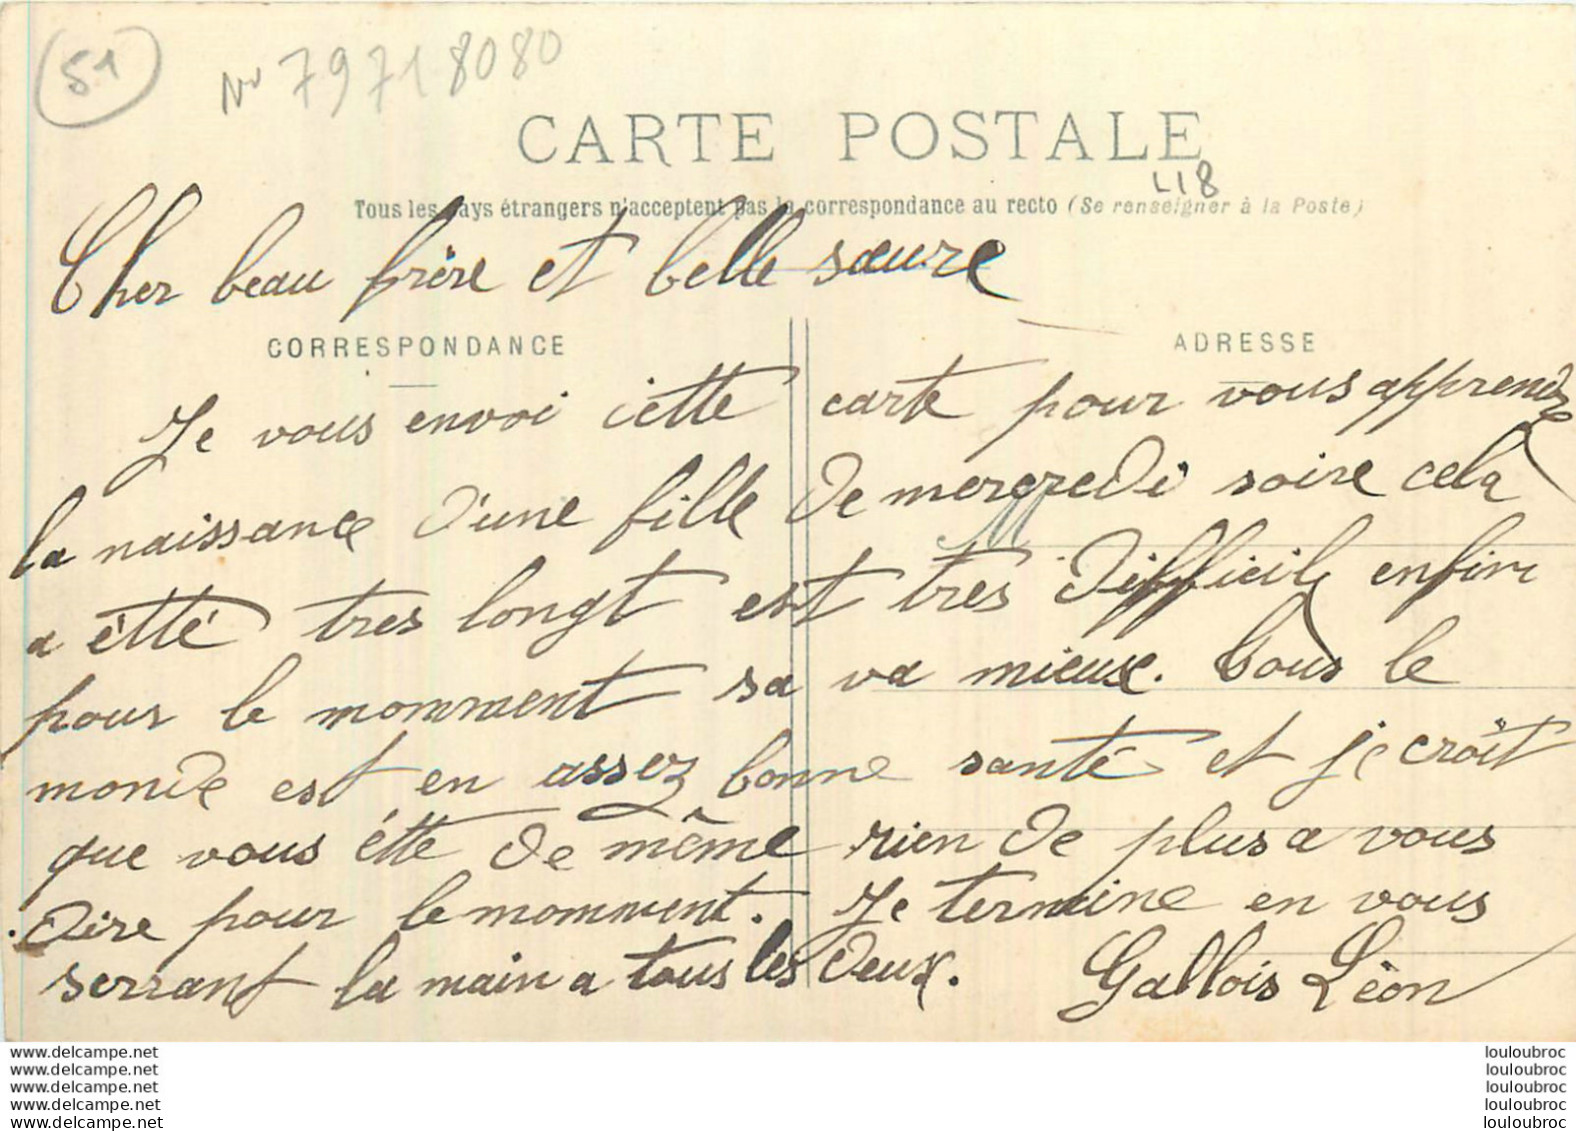 51
No 79718080
CARTE POSTALE
L18
Tous les pays étrangers n'acceptent pas la correspondance au recto (Se renseigner à la Poste)
Cher beau frère et belle sœure
CORRESPONDANCE
ADRESSE
Je vous envoi cette carte pour vous apprendre
la naissance d'une fille de mercredi soire cela
a étté tres longt est tres difficile enfin
pour le momment sa va mieux. Tous le
monde est en assez bonne santé et je croît
que vous étte de même rien de plus a vous
dire pour le momment. Je termine en vous
serrant la main a tous les deux. Gallois Léon
www.delcampe.net
www.delcampe.net
www.delcampe.net
www.delcampe.net
www.delcampe.net
louloubroc
louloubroc
louloubroc
louloubroc
louloubroc